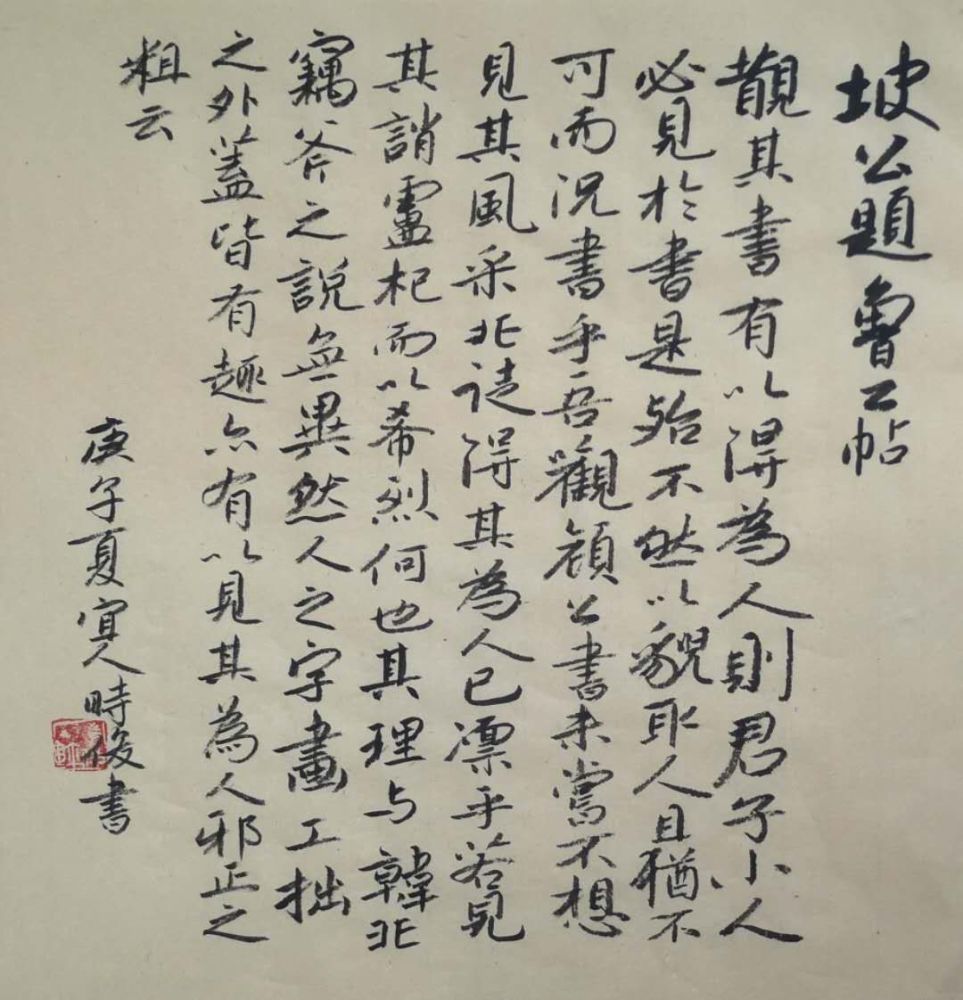 坡公題魯公帖
觀其書有以得為人則君子小人
必見於書是殆不然以貌取人且猶不
可而況書乎吾觀顔公書未嘗不想
見其風采非徒得其為人已凛乎若見
其誚盧杞而以希烈何也其理與韓非
竊斧之說無異然人之字畫工拙
之外蓋皆有趣亦有以見其為人邪正之
粗云
庚子夏宜人時俊書